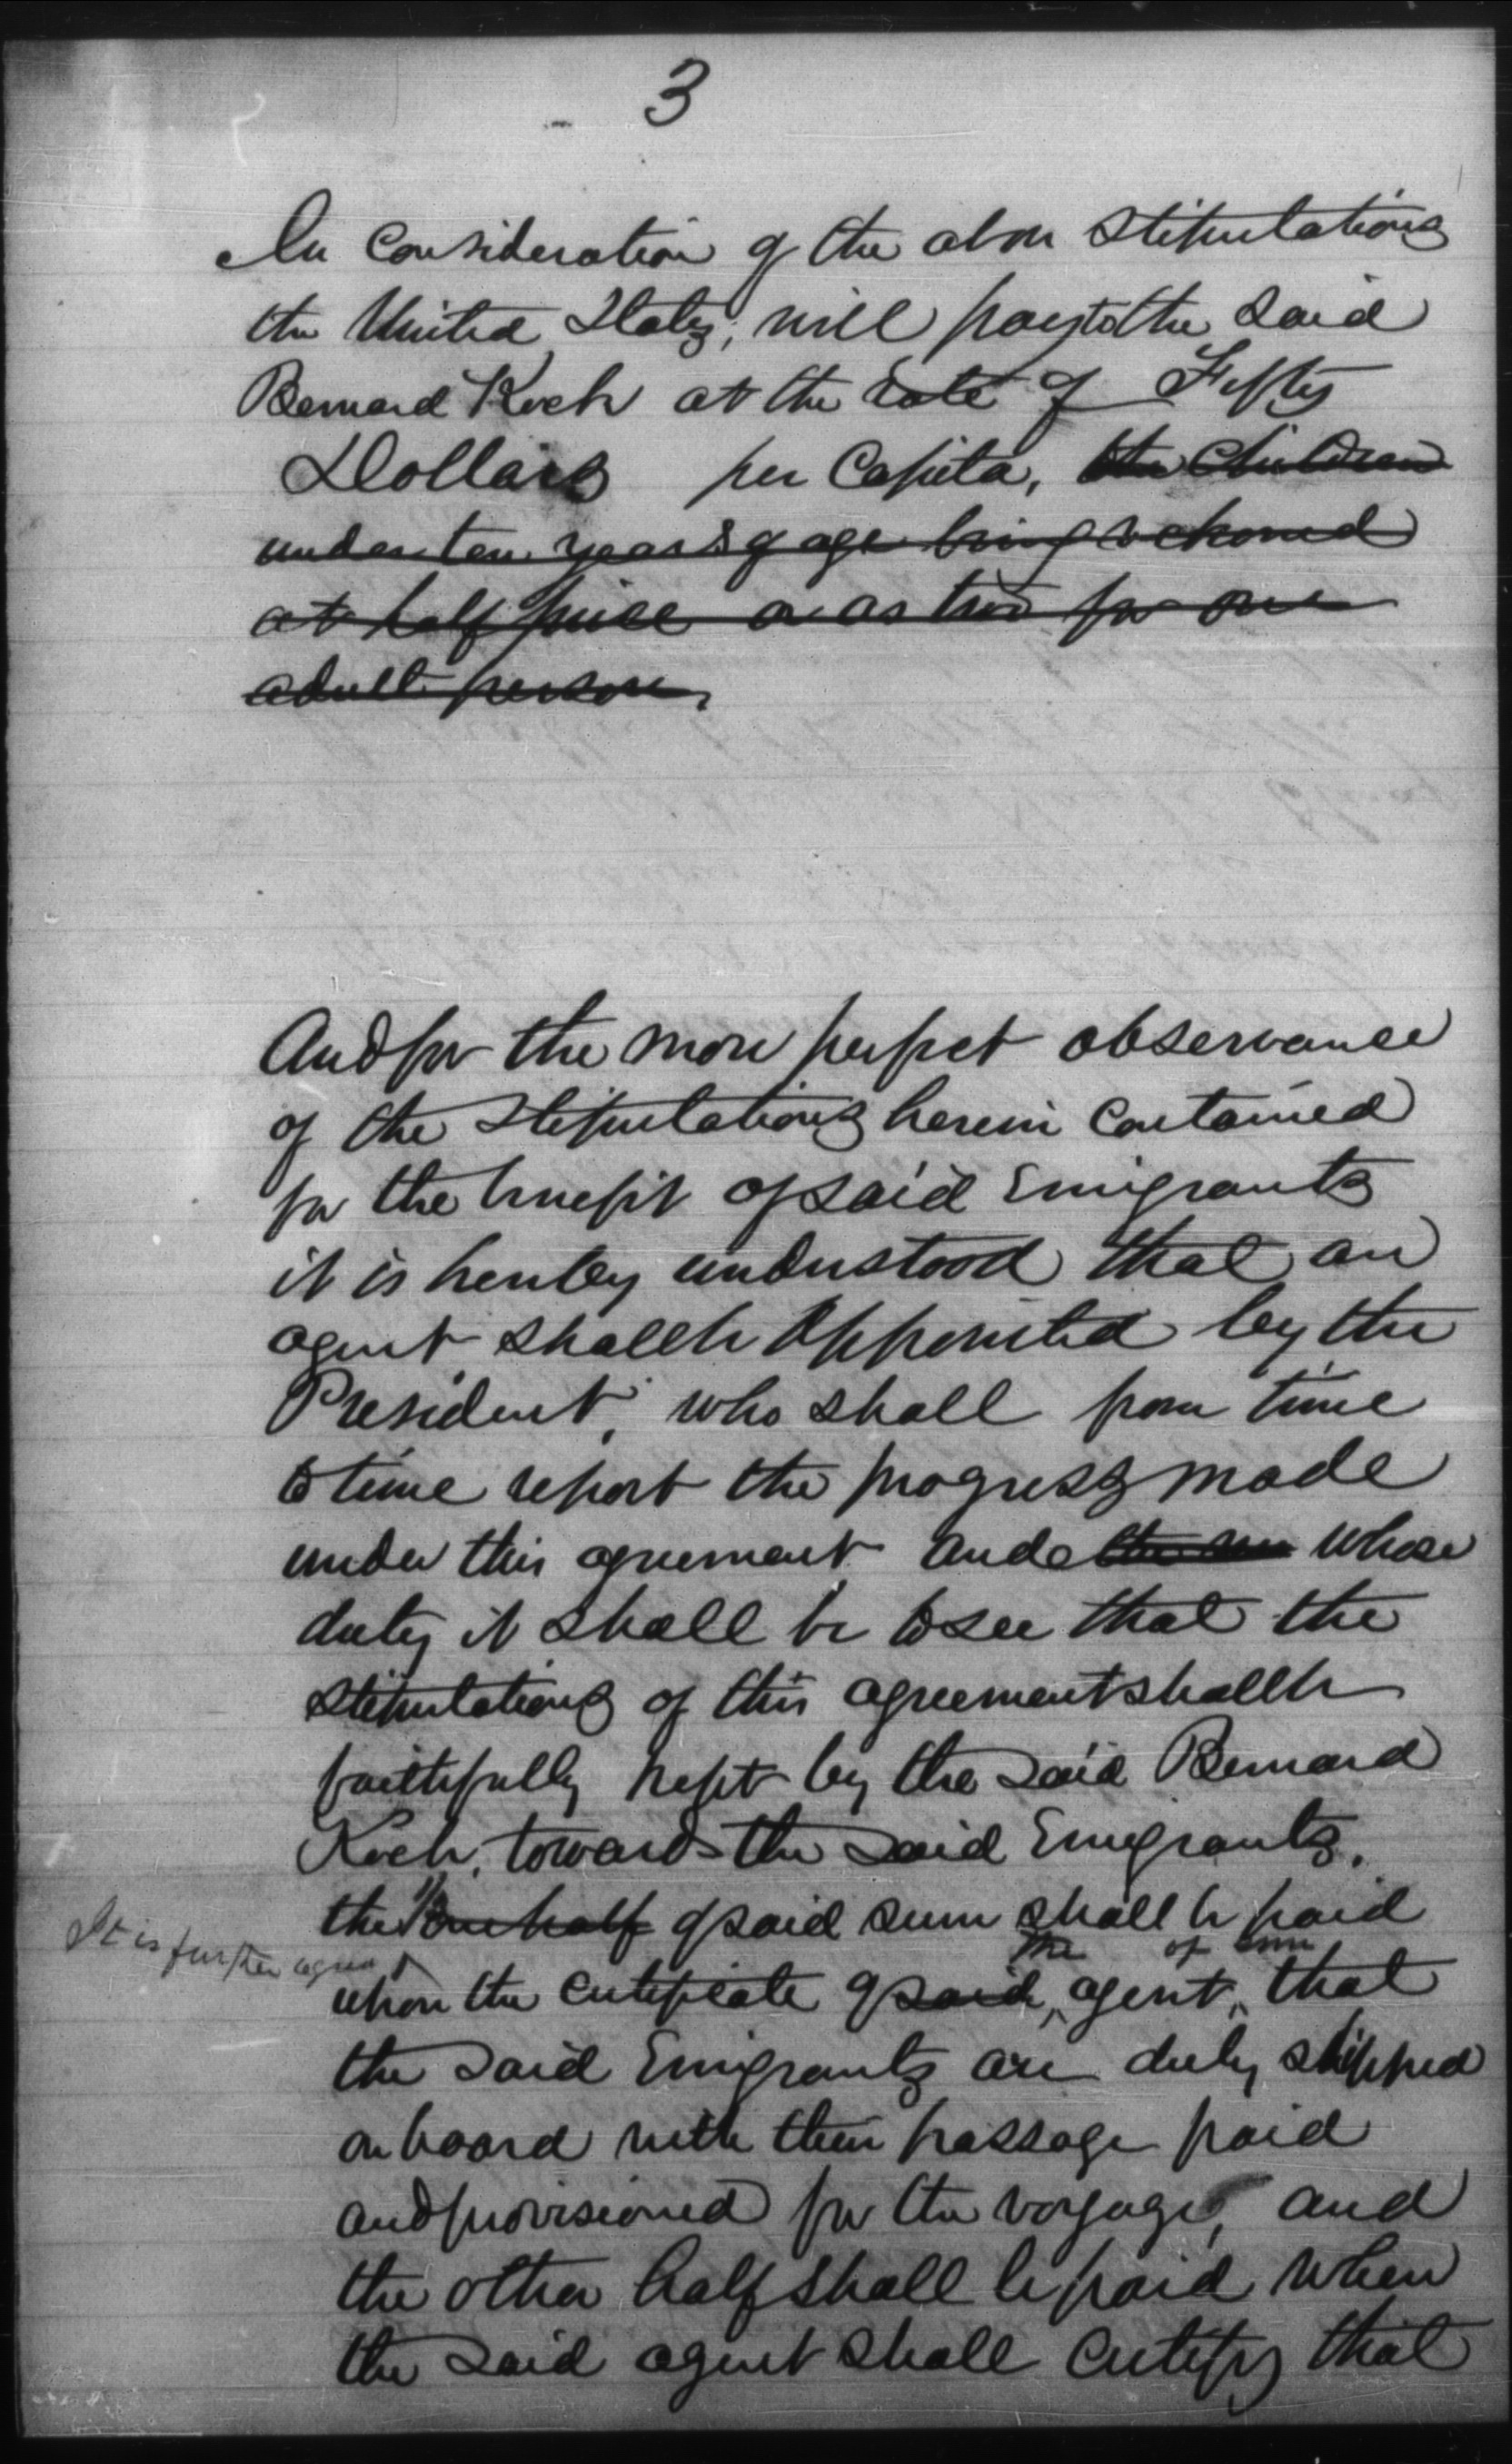 3
In Consideration of the above Stipulations
the United States, will pay to the said
Bernard Koch at the rate of Fifty
Dollars per Capita, the children
under ten years of age being reckoned
at half price or as two for one
adult person,
And for the more perfect observance
of the Stipulations herein Contained
for the benefit of said Emigrants
it is hereby understood that an
agent shall be appointed by the
President, who shall from time
to time report the progress made
under this agreement and whose
duty it shall be to see that the
Stipulations of this agreement shall be
faithfully kept by the said Bernard
Koch, towards the said Emigrants.
It is further agreed
the One half of said sum shall be paid
the of
upon the certificate of said agent, that
the said Emigrants are duly shipped
on board with their passage paid
and provisioned for the voyage, and
the other half shall be paid when
the said agent shall certify that